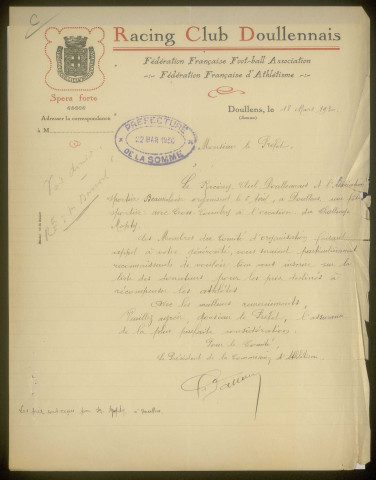 C
Racing Club Doullennais
Fédération Française Foot-ball Association
Fédération Française d'Athlétisme
Spera forte
Adresser la correspondance
à M
Doullens, le 18 Mars 19
(Somme)
PRÉFECTURE
22 MAR 1930
DE LA SOMME
Monsieur le Préfet,
Le Racing Club Doullennais et l'
sportive organisent le à Doullens, une
sportive à l'occasion du Challenge
Les Membres du Comité d'organisation faisant
appel à votre générosité, vous seraient particulièrement
reconnaissants de vouloir bien vous inscrire sur la
liste des donateurs pour les prix destinés à
récompenser les athlètes.
Avec les meilleurs remerciements,
Veuillez agréer, Monsieur le Préfet, l'assurance
de la plus parfaite considération.
Pour le Comité,
Le Président de la Commission d'Athlétisme
Les prix sont reçus par M. à Doullens